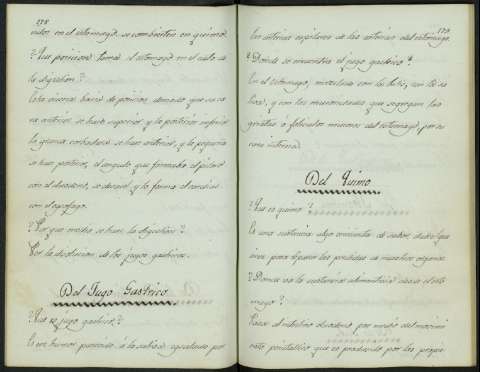 178
nidos en el estomago, se convierten en quimo?
¿Que posicion toma el estomago en el acto de
la digestion?
Esta viscera varía de posicion, de modo que su ca
ra anterior se hace superior, y la posterior inferior
la grande corbadura se hace anterior, y la pequeña
se hace posterior, el angulo que formaba el piloro
con el duodeno, se
con el esofago.
¿Por que medio se hace la digestion?
Por la disolucion de los jugos gastricos.
Del Jugo Gastrico.
¿Que es jugo gastrico?
Es un humor parecido á la saliva segregado por
179
las arterias capilares de las arterias del estomago.
¿Donde se encuentra el jugo gastrico?
En el estomago, mezclado con la bilis, con la sa
liva, y con las mucosidades que segregan las
criptas ó foliculos mucosos del estomago, por su
cara interna.
Del Quimo
¿Que es quimo?
Es una sustancia
para reparar las perdidas de nuestros organos.
¿Donde va la sustancia alimenticia desde el esto
mago?
Pasa al intestino duodeno por medio del movimi
ento peristaltico que es producido por las propie